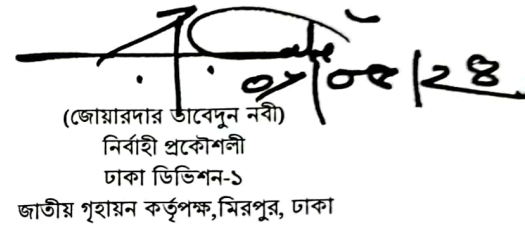 ০৮/০৫/২৪
(জোয়ারদার তাবেদুন নবী)
নির্বাহী প্রকৌশলী
ঢাকা ডিভিশন-১
জাতীয় গৃহায়ন কর্তৃপক্ষ,মিরপুর, ঢাকা